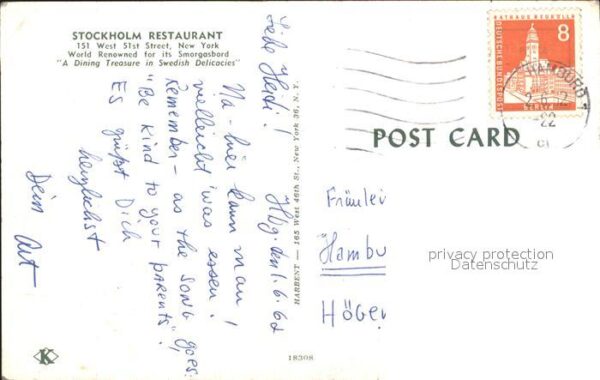 STOCKHOLM RESTAURANT
151 West 51st Street, New York
World Renowned for its Smorgasbord
"A Dining Treasure in Swedish Delicacies"
Hbg. den 1.6.62
Liebe Heidi!
Na - hier kann man
vielleicht was essen!
Remember - as the song goes:
"Be kind to your parents".
Es grüßt Dich
herzlichst
Dein Art
HARBENT — 165 West 46th St., New York 36, N.Y.
18308
K
POST CARD
RATHAUS NEUKÖLLN
8
DEUTSCHE BUNDESPOST
BERLIN
HAMBURG 1
-22
Fräulei
Hambu
Höger
privacy protection
Datenschutz